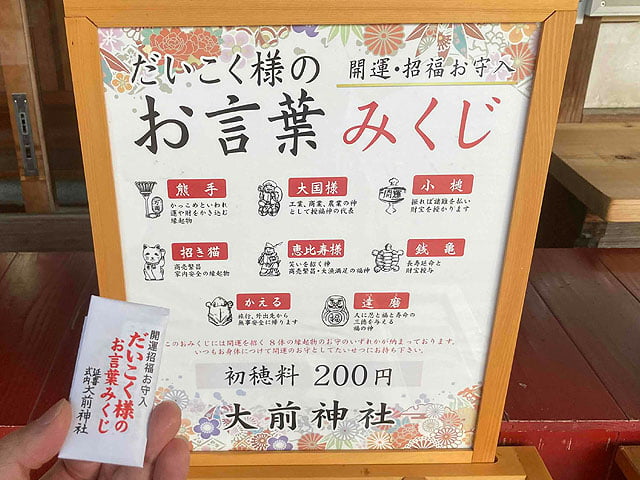 だいこく様の
開運・招福お守入
お言葉みくじ
熊手
かっこめといわれ
運や財をかき込む
縁起物
大国様
工業、商業、農業の神
として授福神の代表
小槌
開運
振れば諸難を払い
財宝を授かります
招き猫
商売繁昌
家内安全の縁起物
恵比寿様
笑いを招く神
商売繁昌・大漁満足の福神
銭亀
長寿延命と
財宝授与
かえる
旅行、外出先から
無事安全に帰ります
達磨
福
人に忍と福と寿命の
三徳を与える
福の神
このおみくじには開運を招く8体の縁起物のお守のいずれかが納まっております。
いつもお身体につけて開運のお守としてたいせつにお持ち下さい。
初穂料 200円
大前神社
開運招福お守入
だいこく様の
お言葉みくじ
延喜式内大前神社